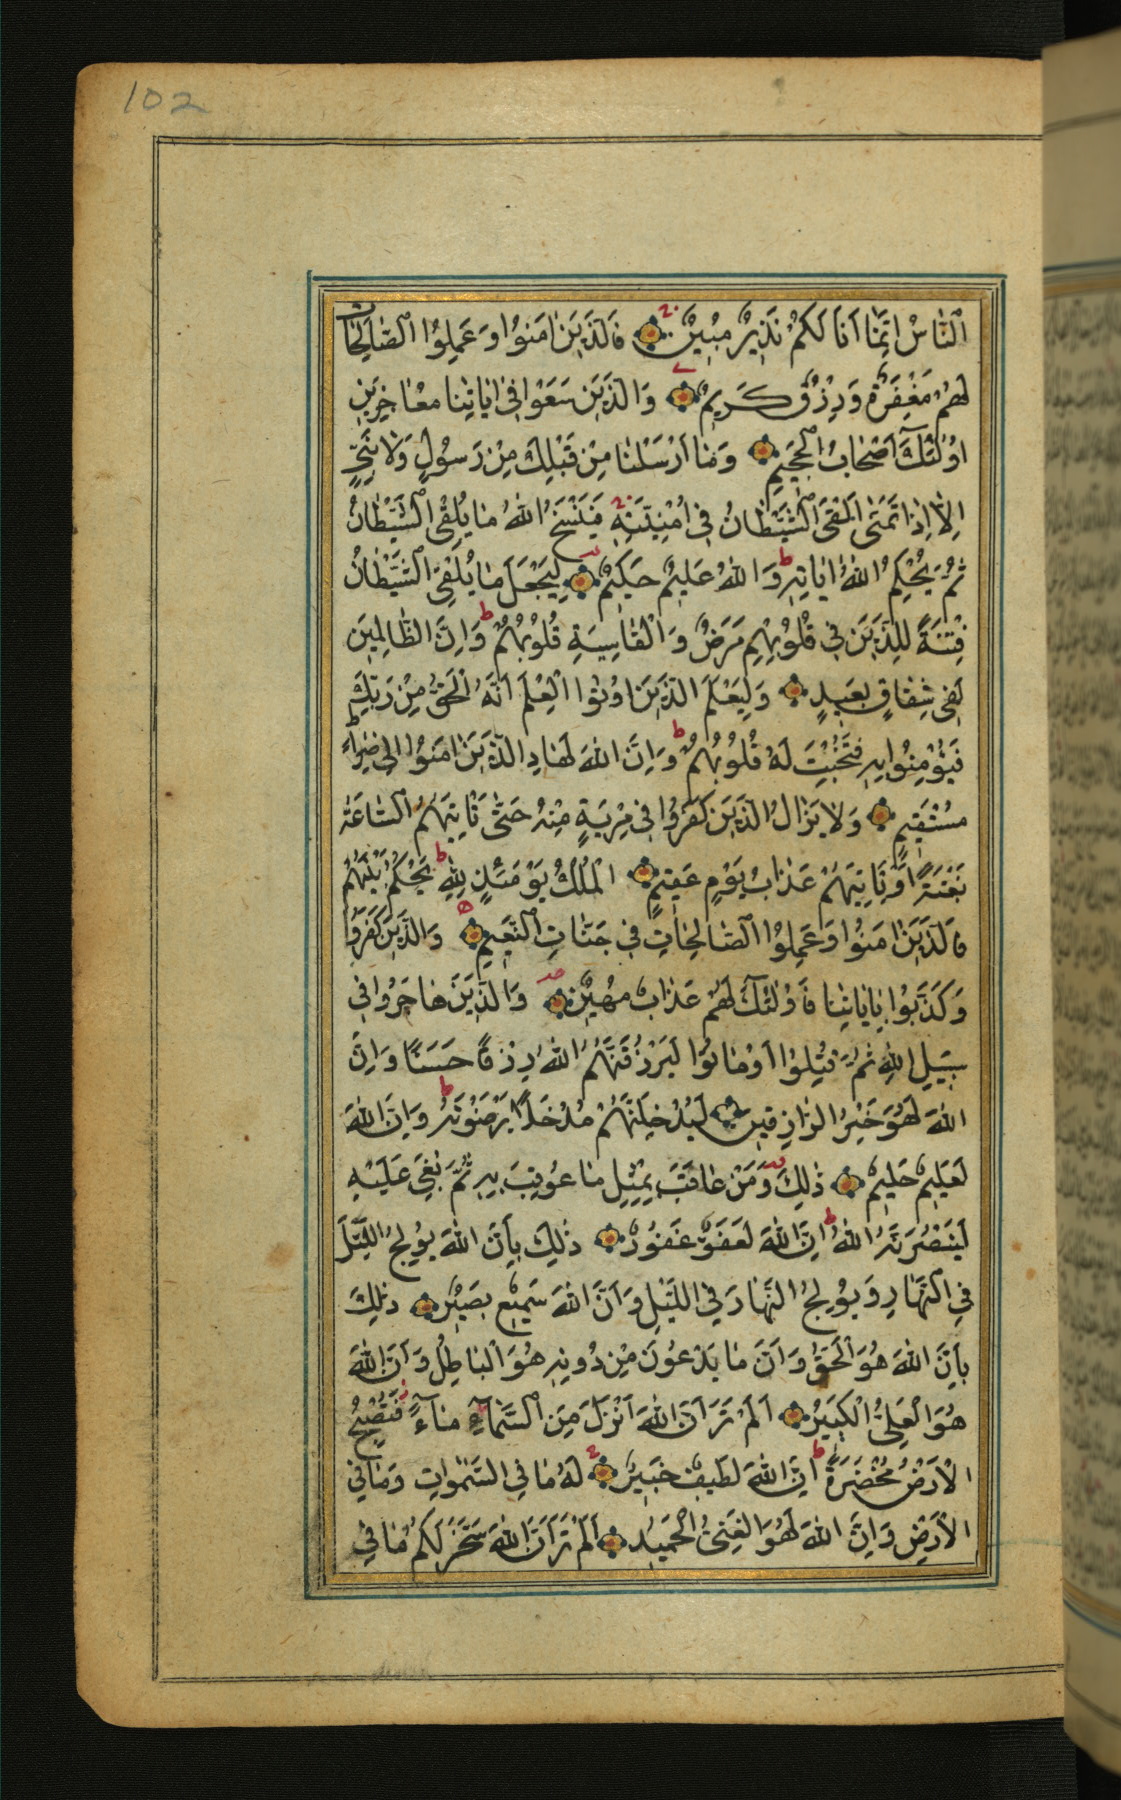 102
النَّاسُ اِنَّمٰا اَنَا لَكُمْ نَذِيرٌ مُبِينٌ فَالَّذِينَ اٰمَنُوا وَعَمِلُوا الصّٰالِحٰاتِ
لَهُمْ مَغْفِرَةٌ وَرِزْقٌ كَرِيمٌ وَالَّذِينَ سَعَوْا فِي اٰيٰاتِنٰا مُعٰاجِزِينَ
اُولٰئِكَ اَصْحٰابُ الْجَحِيمِ وَمٰا اَرْسَلْنٰا مِنْ قَبْلِكَ مِنْ رَسُولٍ وَلٰا نَبِيٍّ
اِلّٰا اِذٰا تَمَنّٰى اَلْقَى الشَّيْطٰانُ فِي اُمْنِيَّتِهِ فَيَنْسَخُ اللّٰهُ مٰا يُلْقِي الشَّيْطٰانُ
ثُمَّ يُحْكِمُ اللّٰهُ اٰيٰاتِهِ ط وَاللّٰهُ عَلِيمٌ حَكِيمٌ لِيَجْعَلَ مٰا يُلْقِي الشَّيْطٰانُ
فِتْنَةً لِلَّذِينَ فِي قُلُوبِهِمْ مَرَضٌ وَالْقٰاسِيَةِ قُلُوبُهُمْ ط وَاِنَّ الظّٰالِمِينَ
لَفِي شِقٰاقٍ بَعِيدٍ وَلِيَعْلَمَ الَّذِينَ اُوتُوا الْعِلْمَ اَنَّهُ الْحَقُّ مِنْ رَبِّكَ
فَيُؤْمِنُوا بِهِ فَتُخْبِتَ لَهُ قُلُوبُهُمْ ط وَاِنَّ اللّٰهَ لَهٰادِ الَّذِينَ اٰمَنُوا اِلٰى صِرٰاطٍ
مُسْتَقِيمٍ وَلٰا يَزٰالُ الَّذِينَ كَفَرُوا فِي مِرْيَةٍ مِنْهُ حَتّٰى تَاْتِيَهُمُ السّٰاعَةُ
بَغْتَةً اَوْ يَاْتِيَهُمْ عَذٰابُ يَوْمٍ عَقِيمٍ الْمُلْكُ يَوْمَئِذٍ لِلّٰهِ ط يَحْكُمُ بَيْنَهُمْ
فَالَّذِينَ اٰمَنُوا وَعَمِلُوا الصّٰالِحٰاتِ فِي جَنّٰاتِ النَّعِيمِ وَالَّذِينَ كَفَرُوا
وَكَذَّبُوا بِاٰيٰاتِنٰا فَاُولٰئِكَ لَهُمْ عَذٰابٌ مُهِينٌ وَالَّذِينَ هٰاجَرُوا فِي
سَبِيلِ اللّٰهِ ثُمَّ قُتِلُوا اَوْ مٰاتُوا لَيَرْزُقَنَّهُمُ اللّٰهُ رِزْقًا حَسَنًا وَاِنَّ
اللّٰهَ لَهُوَ خَيْرُ الرّٰازِقِينَ لَيُدْخِلَنَّهُمْ مُدْخَلًا يَرْضَوْنَهُ ط وَاِنَّ اللّٰهَ
لَعَلِيمٌ حَلِيمٌ ذٰلِكَ وَمَنْ عٰاقَبَ بِمِثْلِ مٰا عُوقِبَ بِهِ ثُمَّ بُغِيَ عَلَيْهِ
لَيَنْصُرَنَّهُ اللّٰهُ ط اِنَّ اللّٰهَ لَعَفُوٌّ غَفُورٌ ذٰلِكَ بِاَنَّ اللّٰهَ يُولِجُ اللَّيْلَ
فِي النَّهٰارِ وَيُولِجُ النَّهٰارَ فِي اللَّيْلِ وَاَنَّ اللّٰهَ سَمِيعٌ بَصِيرٌ ذٰلِكَ
بِاَنَّ اللّٰهَ هُوَ الْحَقُّ وَاَنَّ مٰا يَدْعُونَ مِنْ دُونِهِ هُوَ الْبٰاطِلُ وَاَنَّ اللّٰهَ
هُوَ الْعَلِيُّ الْكَبِيرُ اَلَمْ تَرَ اَنَّ اللّٰهَ اَنْزَلَ مِنَ السَّمٰآءِ مٰآءً فَتُصْبِحُ
الْاَرْضُ مُخْضَرَّةً ط اِنَّ اللّٰهَ لَطِيفٌ خَبِيرٌ لَهُ مٰا فِي السَّمٰوٰاتِ وَمٰا فِي
الْاَرْضِ وَاِنَّ اللّٰهَ لَهُوَ الْغَنِيُّ الْحَمِيدُ اَلَمْ تَرَ اَنَّ اللّٰهَ سَخَّرَ لَكُمْ مٰا فِي